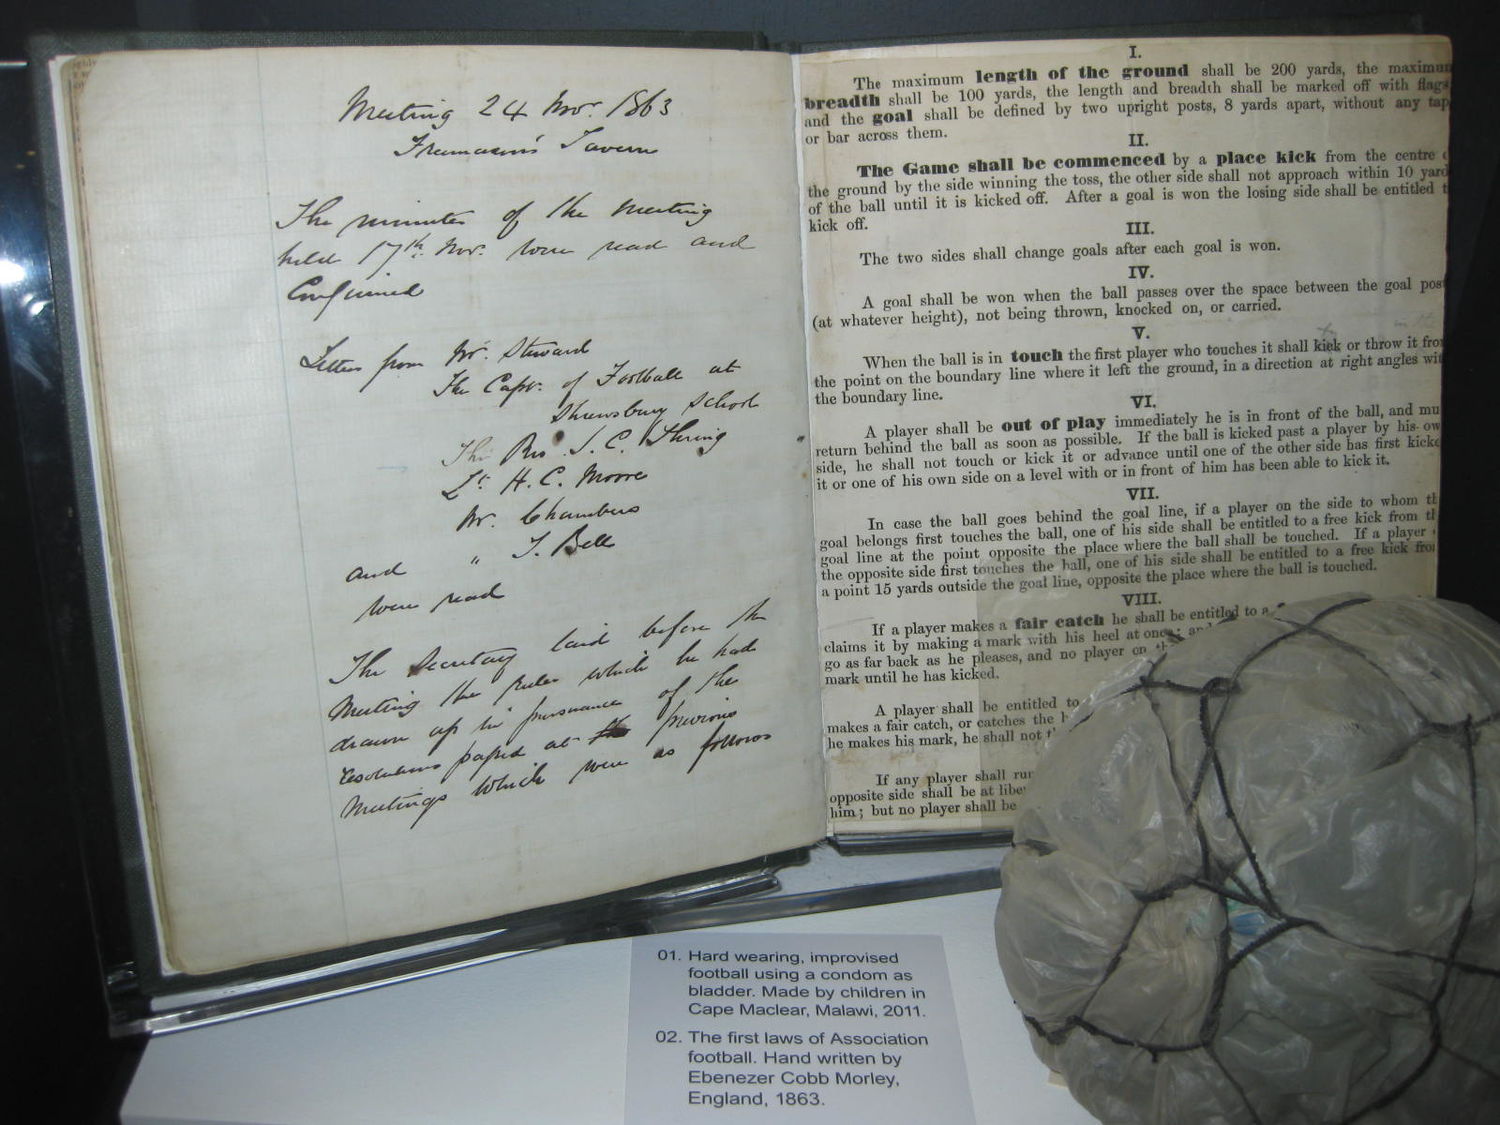 Meeting 24 Novr. 1863
Freemason's Tavern
The minutes of the Meeting
held 17th. Novr. were read and
Confirmed
Letters from Mr. Steward
The Capt. of Football at
Shrewsbury School
The Rev. J. C. Thring
Lt. H. C. Moore
Mr. Chambers
and " T. Bell
were read
The Secretary laid before the
Meeting the rules which he had
drawn up in pursuance of the
resolutions passed at the previous
Meetings which were as follows
I.
The maximum length of the ground shall be 200 yards, the maximum
breadth shall be 100 yards, the length and breadth shall be marked off with flags
and the goal shall be defined by two upright posts, 8 yards apart, without any tap
or bar across them.
II.
The Game shall be commenced by a place kick from the centre
the ground by the side winning the toss, the other side shall not approach within 10 yard
of the ball until it is kicked off. After a goal is won the losing side shall be entitled t
kick off.
III.
The two sides shall change goals after each goal is won.
IV.
A goal shall be won when the ball passes over the space between the goal post
(at whatever height), not being thrown, knocked on, or carried.
V.
When the ball is in touch the first player who touches it shall kick or throw it from
the point on the boundary line where it left the ground, in a direction at right angles wit
the boundary line.
VI.
A player shall be out of play immediately he is in front of the ball, and mu
return behind the ball as soon as possible. If the ball is kicked past a player by his ow
side, he shall not touch or kick it or advance until one of the other side has first kicke
it or one of his own side on a level with or in front of him has been able to kick it.
VII.
In case the ball goes behind the goal line, if a player on the side to whom th
goal belongs first touches the ball, one of his side shall be entitled to a free kick from th
goal line at the point opposite the place where the ball shall be touched. If a player
the opposite side first touches the ball, one of his side shall be entitled to a free kick from
a point 15 yards outside the goal line, opposite the place where the ball is touched.
VIII.
If a player makes a fair catch he shall be entitled to a
claims it by making a mark with his heel at once; and
go as far back as he pleases, and no player on
mark until he has kicked.
A player shall be entitled to
makes a fair catch, or catches the
he makes his mark, he shall not
If any player shall run
opposite side shall be at
him; but no player shall be
01. Hard wearing, improvised
football using a condom as
bladder. Made by children in
Cape Maclear, Malawi, 2011.
02. The first laws of Association
football. Hand written by
Ebenezer Cobb Morley,
England, 1863.